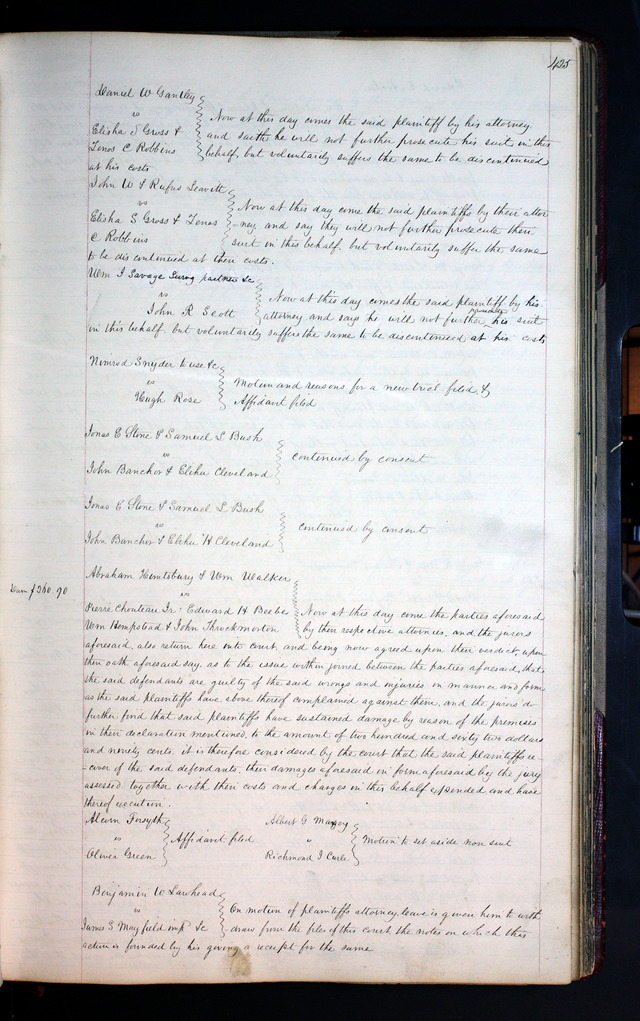 425
Daniel W Gantley
vs
Elisha S Gross &
Tenos C Robbins
Now at this day comes the said plaintiff by his attorney
and saith he will not further prosecute his suit in this
behalf, but voluntarily suffers the same to be discontinued
at his costs
John W & Rufus Leavitt
vs
Elisha S Gross & Tenos
C Robbins
Now at this day come the said plaintiffs by their attor
-ney and say they will not further prosecute their
suit in this behalf. but voluntarily suffer the same
to be discontinued at their costs.
Wm J Savage Survg partner &c
vs
John R Scott
Now at this day comes the said plaintiff by his
attorney and says he will not further prosecute his suit
in this behalf. but voluntarily suffers the same to be discontinued at his costs
Nimrod Snyder to use &c
vs
Hugh Rose
Motion and reasons for a new trial filed &
Affidavit filed
Jonas E Stone & Samuel S Bush
vs
John Banchor & Elihu Cleveland
continued by consent
Jonas E Stone & Samuel S Bush
vs
John Banchor & Elihu H Cleveland
continued by consent
Abraham & Wm Walker
vs
Pierre Chouteau Jr: Edward H Beebe
Wm Hempstead & John Throckmorton
Dam $260.90
Now at this day come the parties aforesaid
by their respective attornies, and the jurors
aforesaid, also return here into court, and being now agreed upon their verdict, upon
their oath aforesaid say. as to the issue within joined between the parties aforesaid, that
the said defendants are guilty of the said wrongs and injuries in manner and form
as the said plaintiffs have above thereof complained against them, and the jurors do
further find that said plaintiffs have sustained damage by reason of the premises
in their declaration mentioned, to the amount of two hundred and sixty two dollars
and ninety cents. it is therefore considered by the court that the said plaintiffs re
-cover of the said defendants, their damages aforesaid in form aforesaid by the jury
assessed together with their costs and charges in this behalf expended and have
thereof execution.
Forsyth
vs
Oliver Green
Affidavit filed
Albert G
"
Richmond J Curle
Motion to set aside non suit
Benjamin W Lawhead
vs
James S Mayfield imp &c
On motion of plaintiffs attorney, leave is given him to with
-draw from the files of this court the notes on which this
action is founded by his giving a receipt for the same